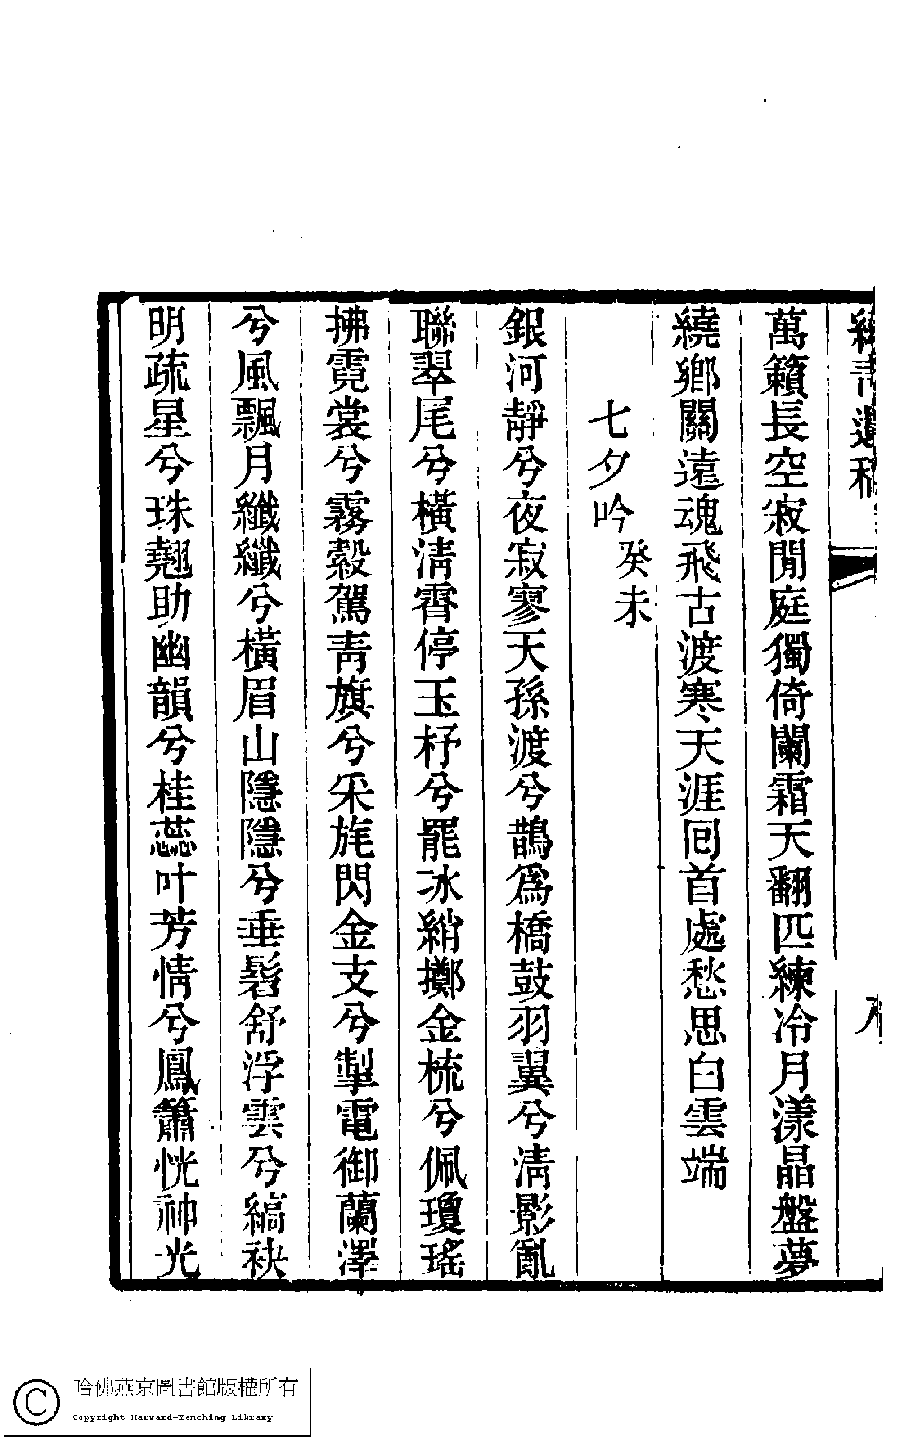 萬籟長空寂閒庭獨倚闌霜天翻匹練冷月漾晶盤夢
繞鄉關遠魂飛古渡寒天涯回首處愁思白雲端
七夕吟癸未
銀河靜兮夜寂寥天孫渡兮鵲爲橋鼓羽翼兮淸影亂
聯翠尾兮橫淸霄停玉杼兮罷冰綃擲金梳兮佩瓊瑤
拂霓裳兮霧縠駕靑旗兮采旄閃金支兮掣電御蘭澤
兮風飄月纖纖兮橫眉山隱隱兮垂髫舒浮雲兮縞袂
明疏星兮珠翹助幽韻兮桂蕊叶芳情兮鳳簫恍神光
哈佛燕京圖書館版權所有
Copyright Harvard-Yenching Library